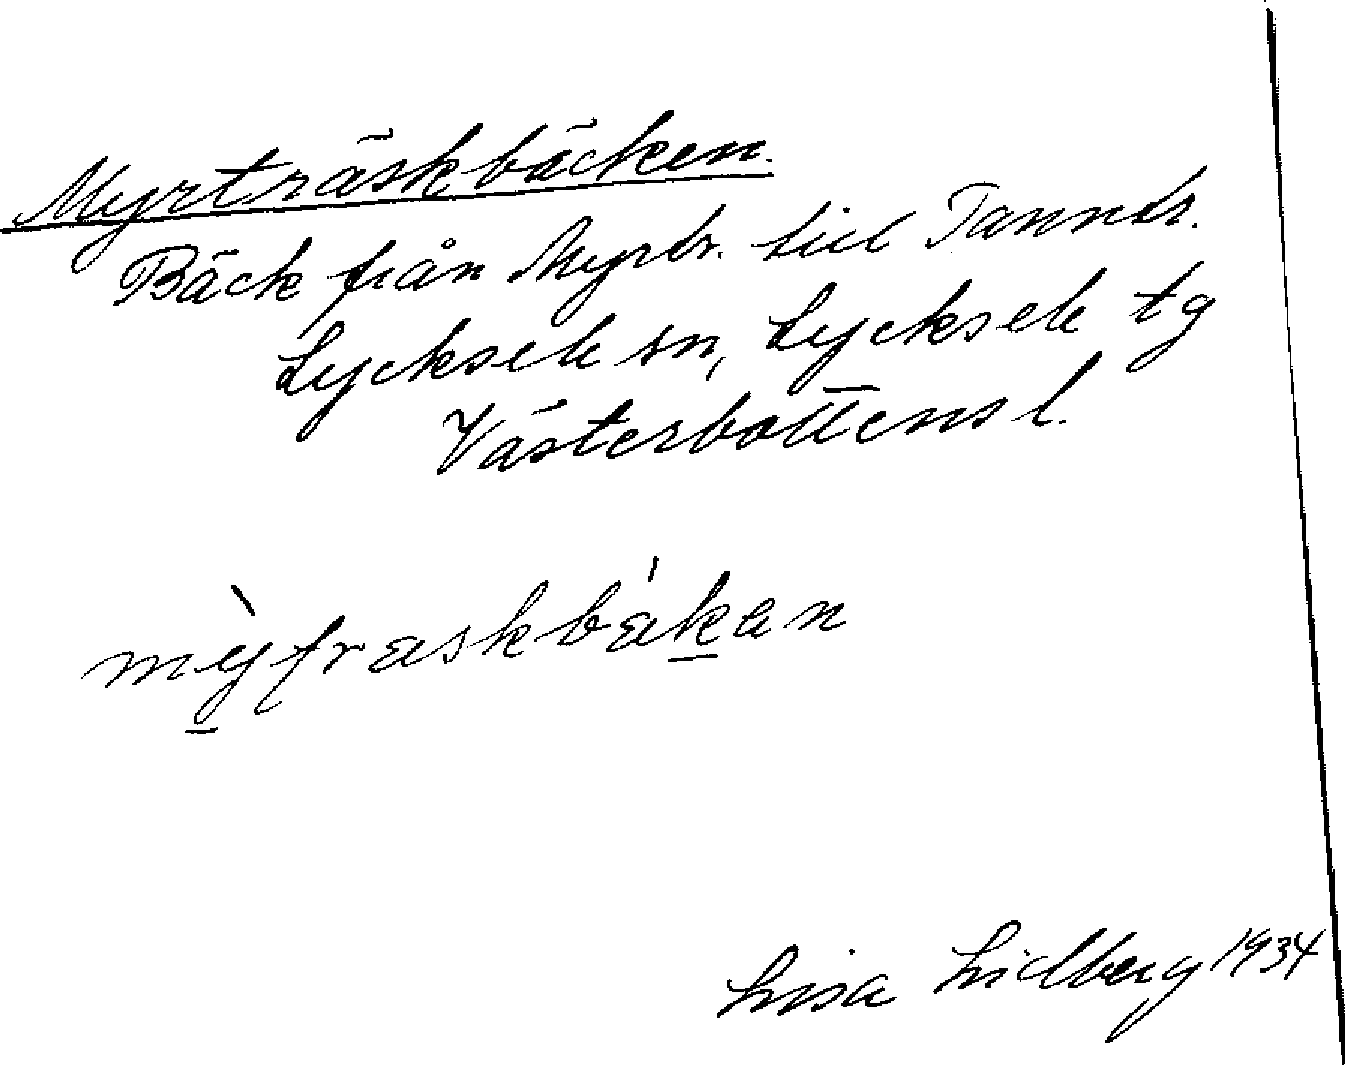 Myrträskbäcken.
Bäck från Myrtr. till Tanntr.
Lycksele sn, Lycksele tg
Västerbottens l.
Lisa Lidberg 1934